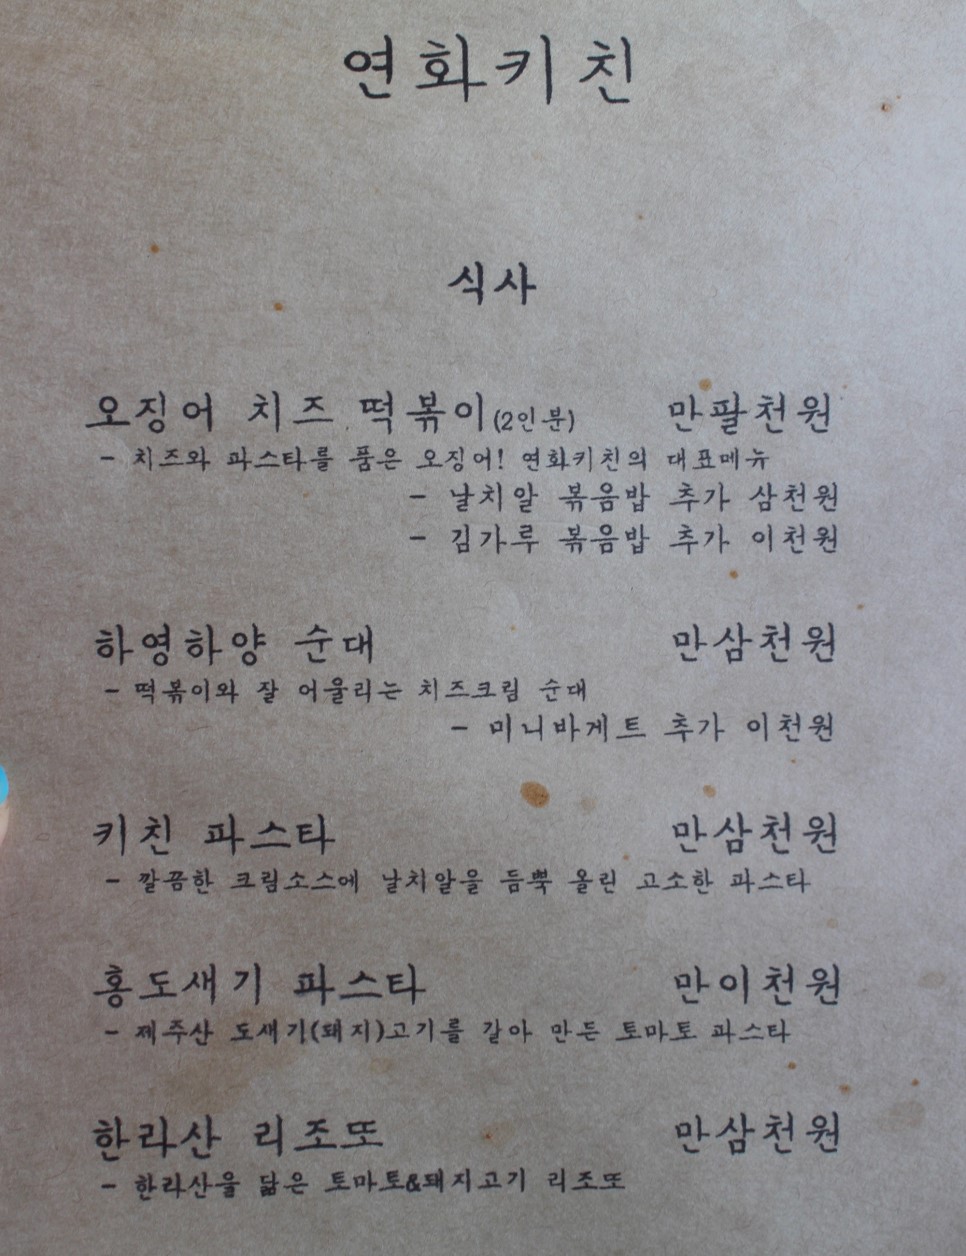 연화키친
식사
오징어 치즈 떡볶이(2인분) 만팔천원
- 치즈와 파스타를 품은 오징어! 연화키친의 대표메뉴
- 날치알 볶음밥 추가 삼천원
- 김가루 볶음밥 추가 이천원
하영하양 순대 만삼천원
- 떡볶이와 잘 어울리는 치즈크림 순대
- 미니바게트 추가 이천원
키친 파스타 만삼천원
- 깔끔한 크림소스에 날치알을 듬뿍 올린 고소한 파스타
홍도새기 파스타 만이천원
- 제주산 도새기(돼지)고기를 갈아 만든 토마토 파스타
한라산 리조또 만삼천원
- 한라산을 닮은 토마토&돼지고기 리조또